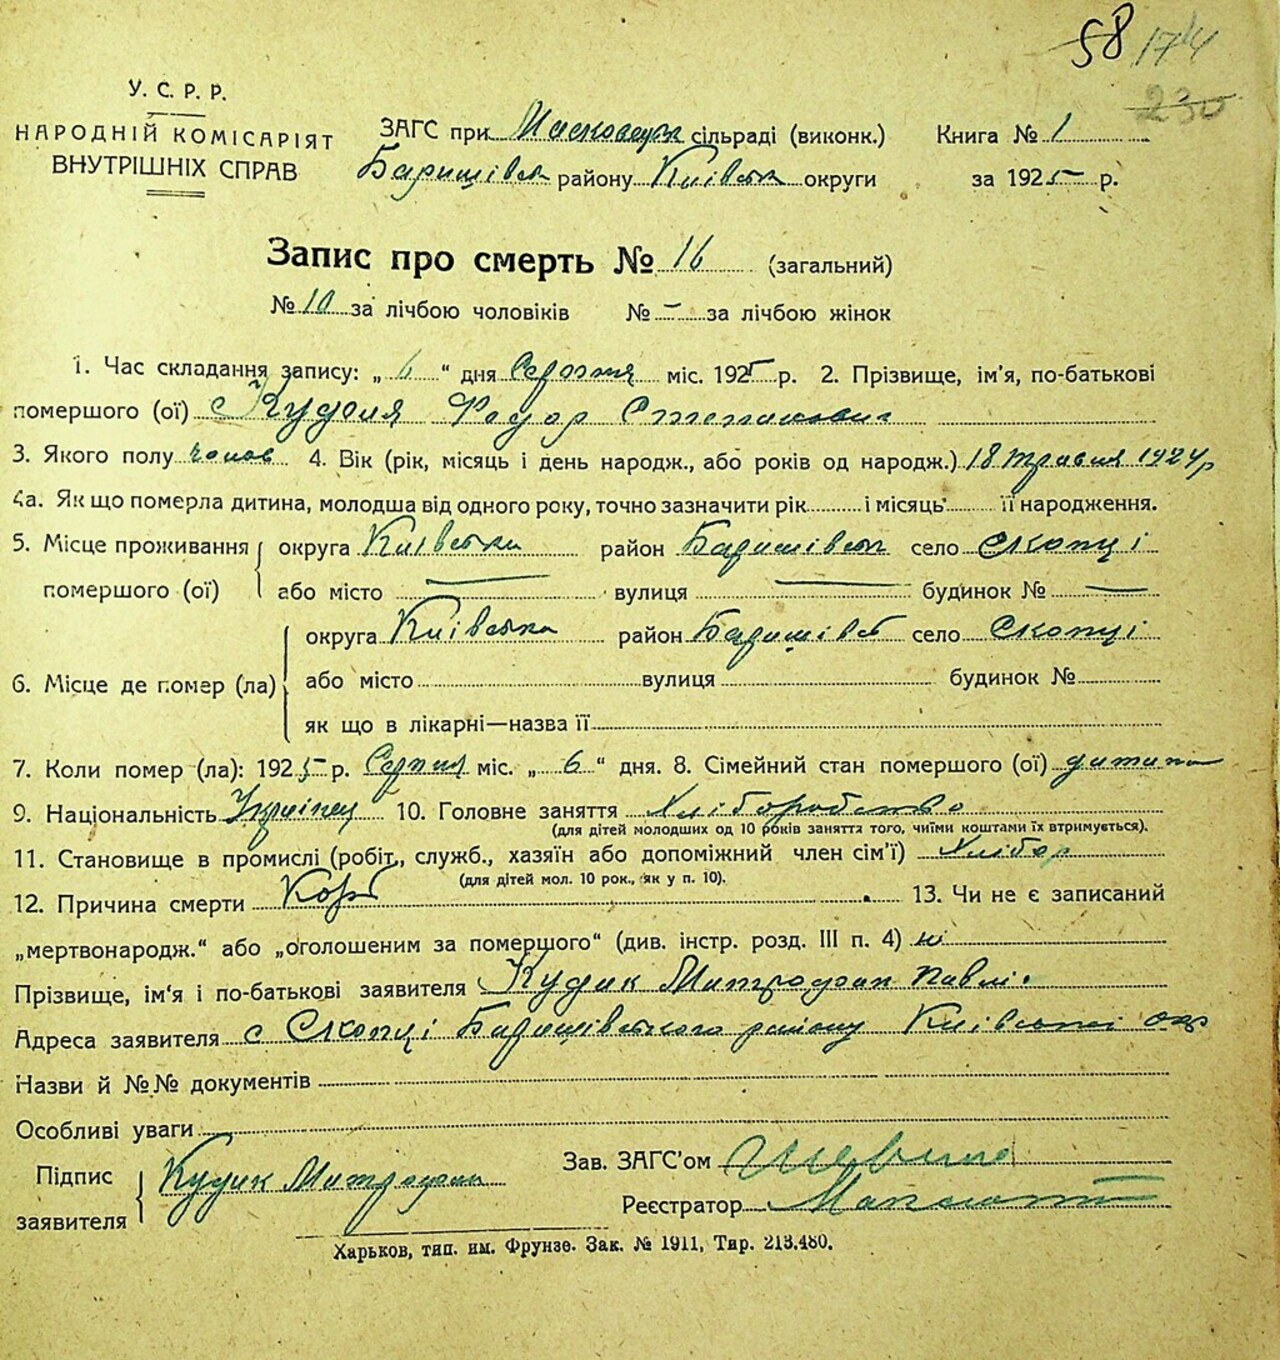 58 174
230
У. С. Р. Р.
НАРОДНІЙ КОМІСАРІЯТ
ВНУТРІШНІХ СПРАВ
ЗАГС при сільраді (виконк.)
Книга № 1
Баришівськ району Київськ округи
за 1925 р.
Запис про смерть № 16 (загальний)
№ 10 за лічбою чоловіків № – за лічбою жінок
1. Час складання запису: „ 6 “ дня Серпня міс. 1925 р. 2. Прізвище, ім'я, по-батькові
помершого (ої) Федор Степанович
3. Якого полу чолов 4. Вік (рік, місяць і день народж., або років од народж.) 18 травня 1924 р
4а. Як що померла дитина, молодша від одного року, точно зазначити рік і місяць її народження.
5. Місце проживання помершого (ої) округа Київська район Баришівськ село Скопці
або місто — вулиця — будинок № —
6. Місце де помер (ла) округа Київська район Баришівс село Скопці
або місто вулиця будинок №
як що в лікарні—назва її
7. Коли помер (ла): 1925 р. Серпня міс. „ 6 “ дня. 8. Сімейний стан помершого (ої) дитина
9. Національність Українец 10. Головне заняття Хліборобство
(для дітей молодших од 10 років заняття того, чиїми коштами їх втримується).
11. Становище в промислі (робіт., служб., хазяїн або допоміжний член сім'ї) Хлібор
(для дітей мол. 10 рок., як у п. 10).
12. Причина смерти Кор 13. Чи не є записаний
„мертвонародж.“ або „оголошеним за помершого“ (див. інстр. розд. III п. 4) ні
Прізвище, ім'я і по-батькові заявителя Кудик Митрофан Павлі.
Адреса заявителя с Скопці Баришівського району Київської окр
Назви й №№ документів
Особливі уваги
Підпис заявителя Кудик Митрофан
Зав. ЗАГС'ом
Реєстратор
Харьков, тип. им. Фрунзе. Зак. № 1911, Тир. 213.480.